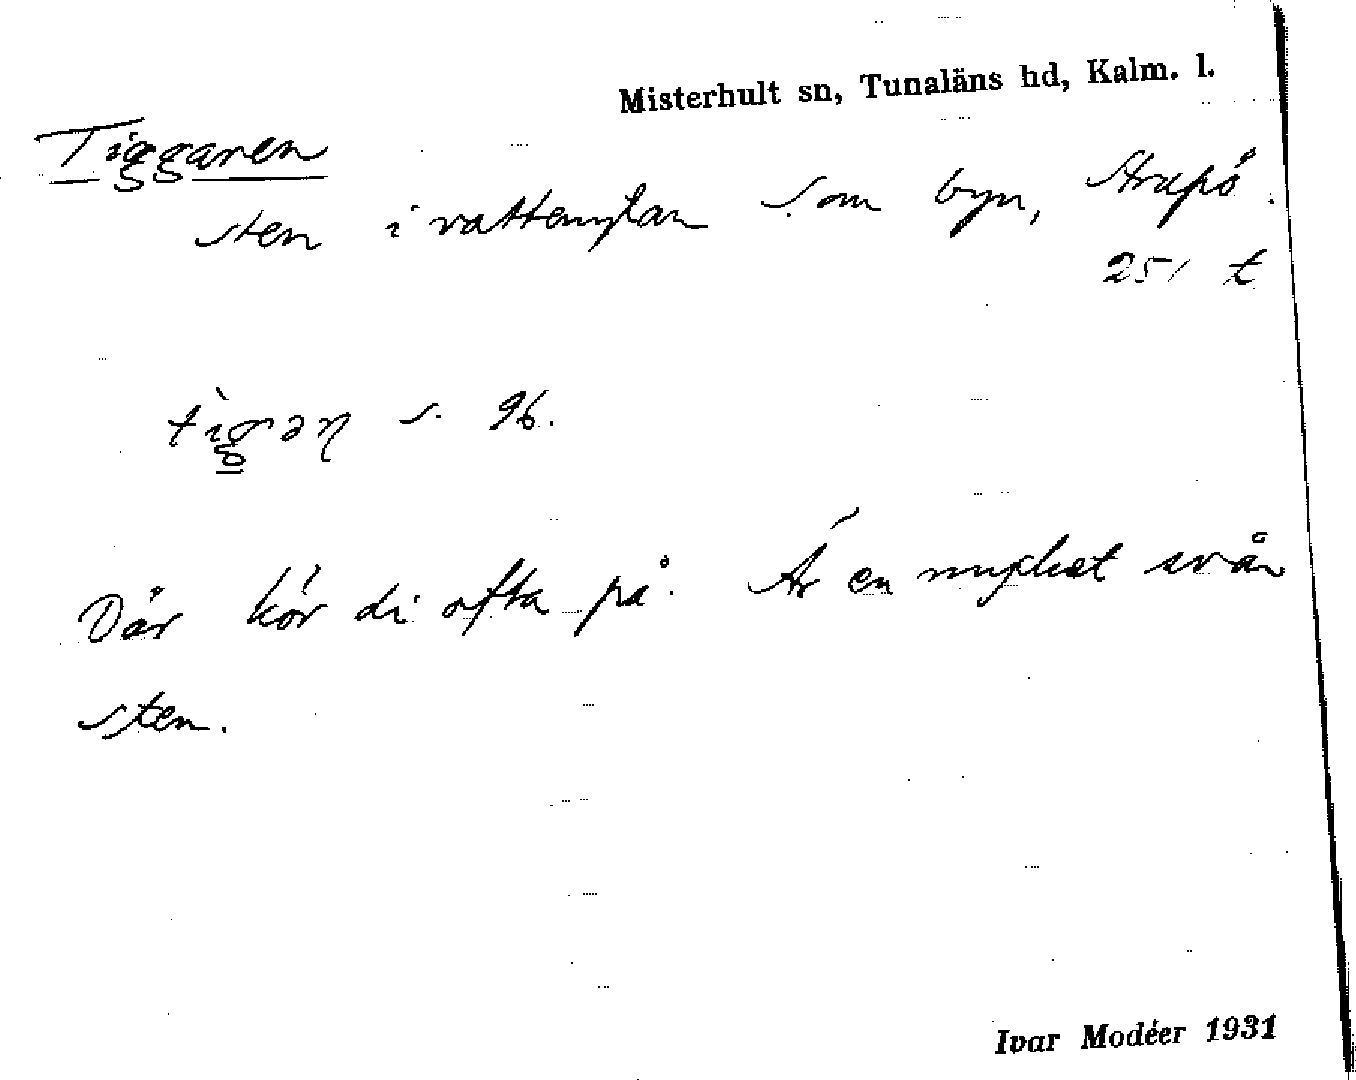 Misterhult sn, Tunaläns hd, Kalm. l.
Tiggaren
sten i vattenytan S. om byn, Strupö.
251 t
s. 96.
Där kör di ofta på. Är en mycket svår
sten.
Ivar Modéer 1931